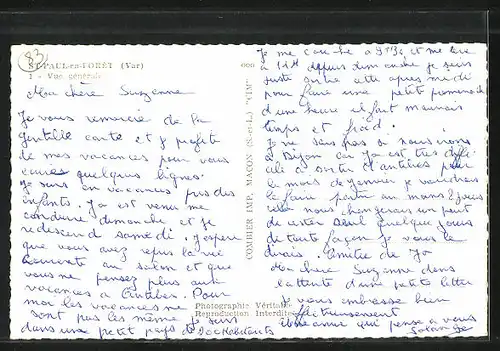 83
ST-PAUL-en-FORÊT (Var)
1 - Vue générale
Ma chère Suzanne
Je vous remercie de la
gentille carte et je profite
de mes vacances pour vous
quelques lignes.
Je suis en vacances près des
enfants. Jo est venu me
conduire dimanche et je
redescend samedi. J'espère
que vous avez repris la vie
au salon et que
vous ne pensez plus aux
vacances à Antibes. Pour
moi les vacances ne
sont pas les même je suis
dans une petit pays de 300 habitants
COMBIER IMP. MACON (S.-et-L.) "CIM"
Photographie Véritable
Reproduction Interdite
Je me couche à 9 et me lève
à 11H depuis dimanche je suis
juste sortie cette après midi
pour faire une petit promenade
d'une heure il fait mauvais
temps et froid.
Je ne sais pas si nous irons
à Dijon car Jo est très diffi
cile à sortir d'antibes pour
le mois de Janvier je voudrais
le faire partir au moins 8 jours
nous changerais un peut
quelque jours
de toute façon je vous le
dirais. Amitié de Jo
Ma chère Suzanne dans
l'attente d'une petite lettre
je vous embrasse bien
affectueusement
amie qui pense à vous
Solange